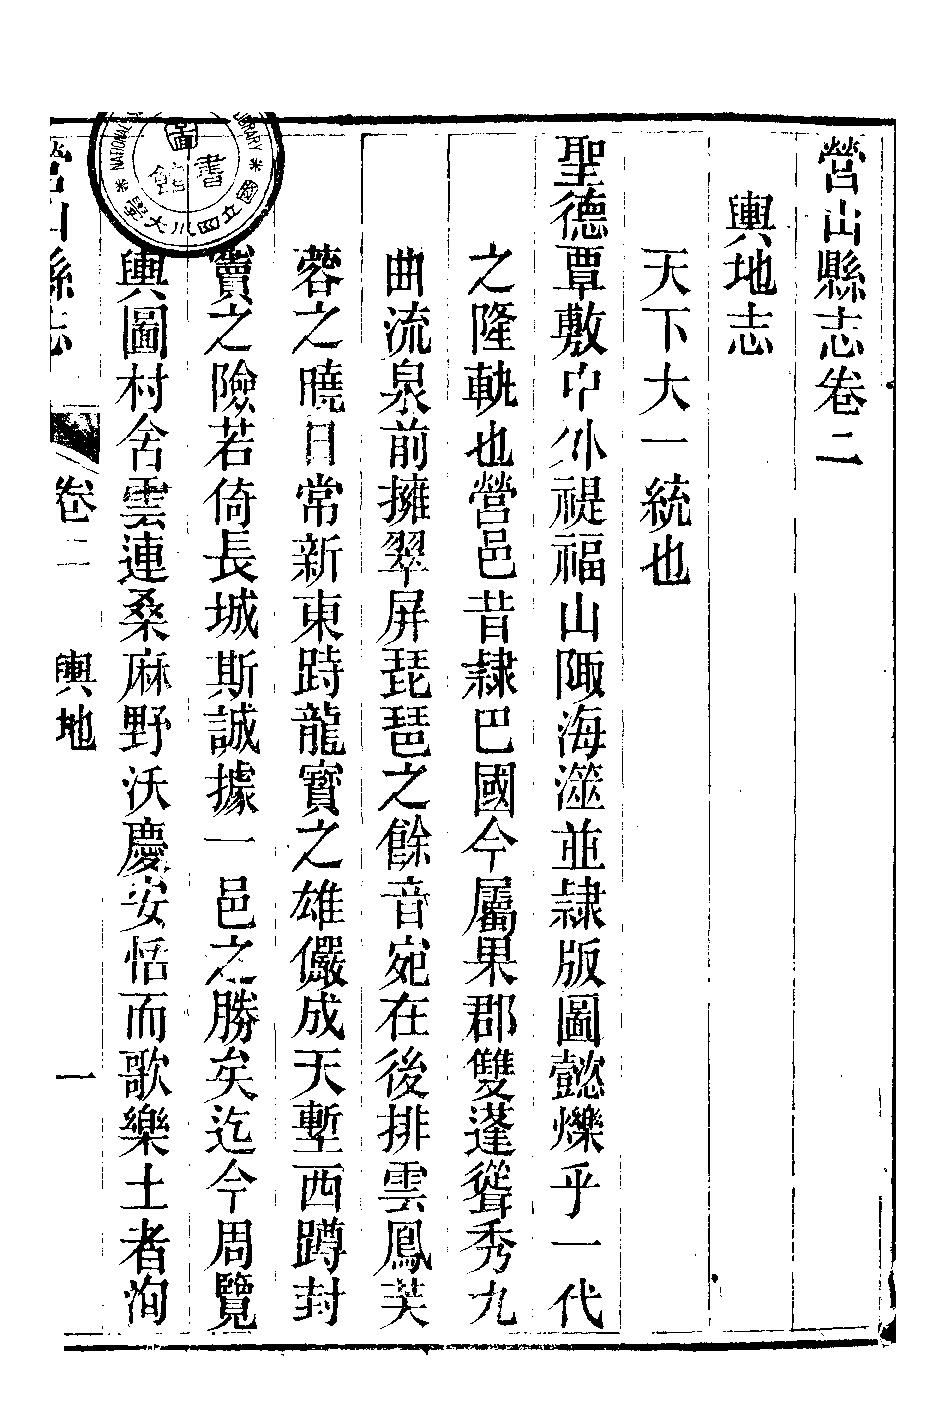 營山縣志卷二
輿地志
天下大一統也
聖德覃敷中外禔福山陬海澨並隸版圖懿爍乎一代
之隆軌也營邑昔隸巴國今屬果郡雙蓬聳秀九
曲流泉前擁翠屏琵琶之餘音宛在後排雲鳳芙
蓉之曉日常新東踌龍寶之雄儼成天塹西蹲封
竇之險若倚長城斯誠據一邑之勝矣迄今周覽
輿圖村舍雲連桑麻野沃慶安恬而歌樂土者洵
營山縣志
卷二
輿地
一
國立四川大學
圖書館
NATIONAL
LIBRARY